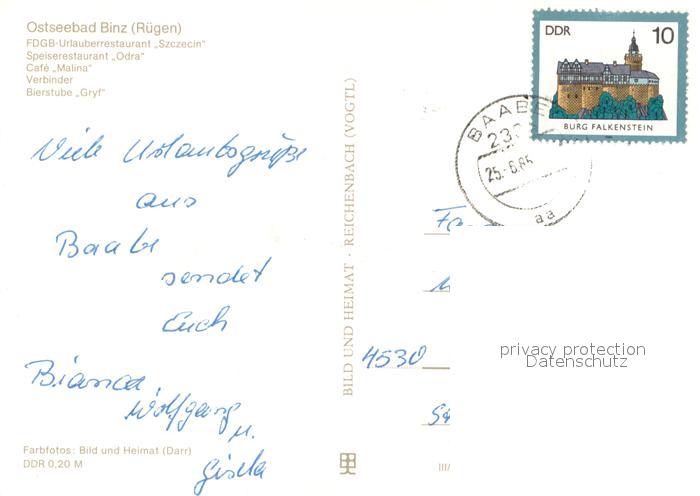 Ostseebad Binz (Rügen)
FDGB-Urlauberrestaurant „Szczecin“
Speiserestaurant „Odra“
Café „Malina“
Verbinder
Bierstube „Gryf“
Viele Urlaubsgrüße
aus
Baabe
sendet
Euch
Bianca,
Wolfgang
u.
Gisela
Farbfotos: Bild und Heimat (Darr)
DDR 0,20 M
BILD UND HEIMAT · REICHENBACH (VOGTL)
DDR 10
BURG FALKENSTEIN
BAABE
aa
Fa
4530
III/
privacy protection
Datenschutz